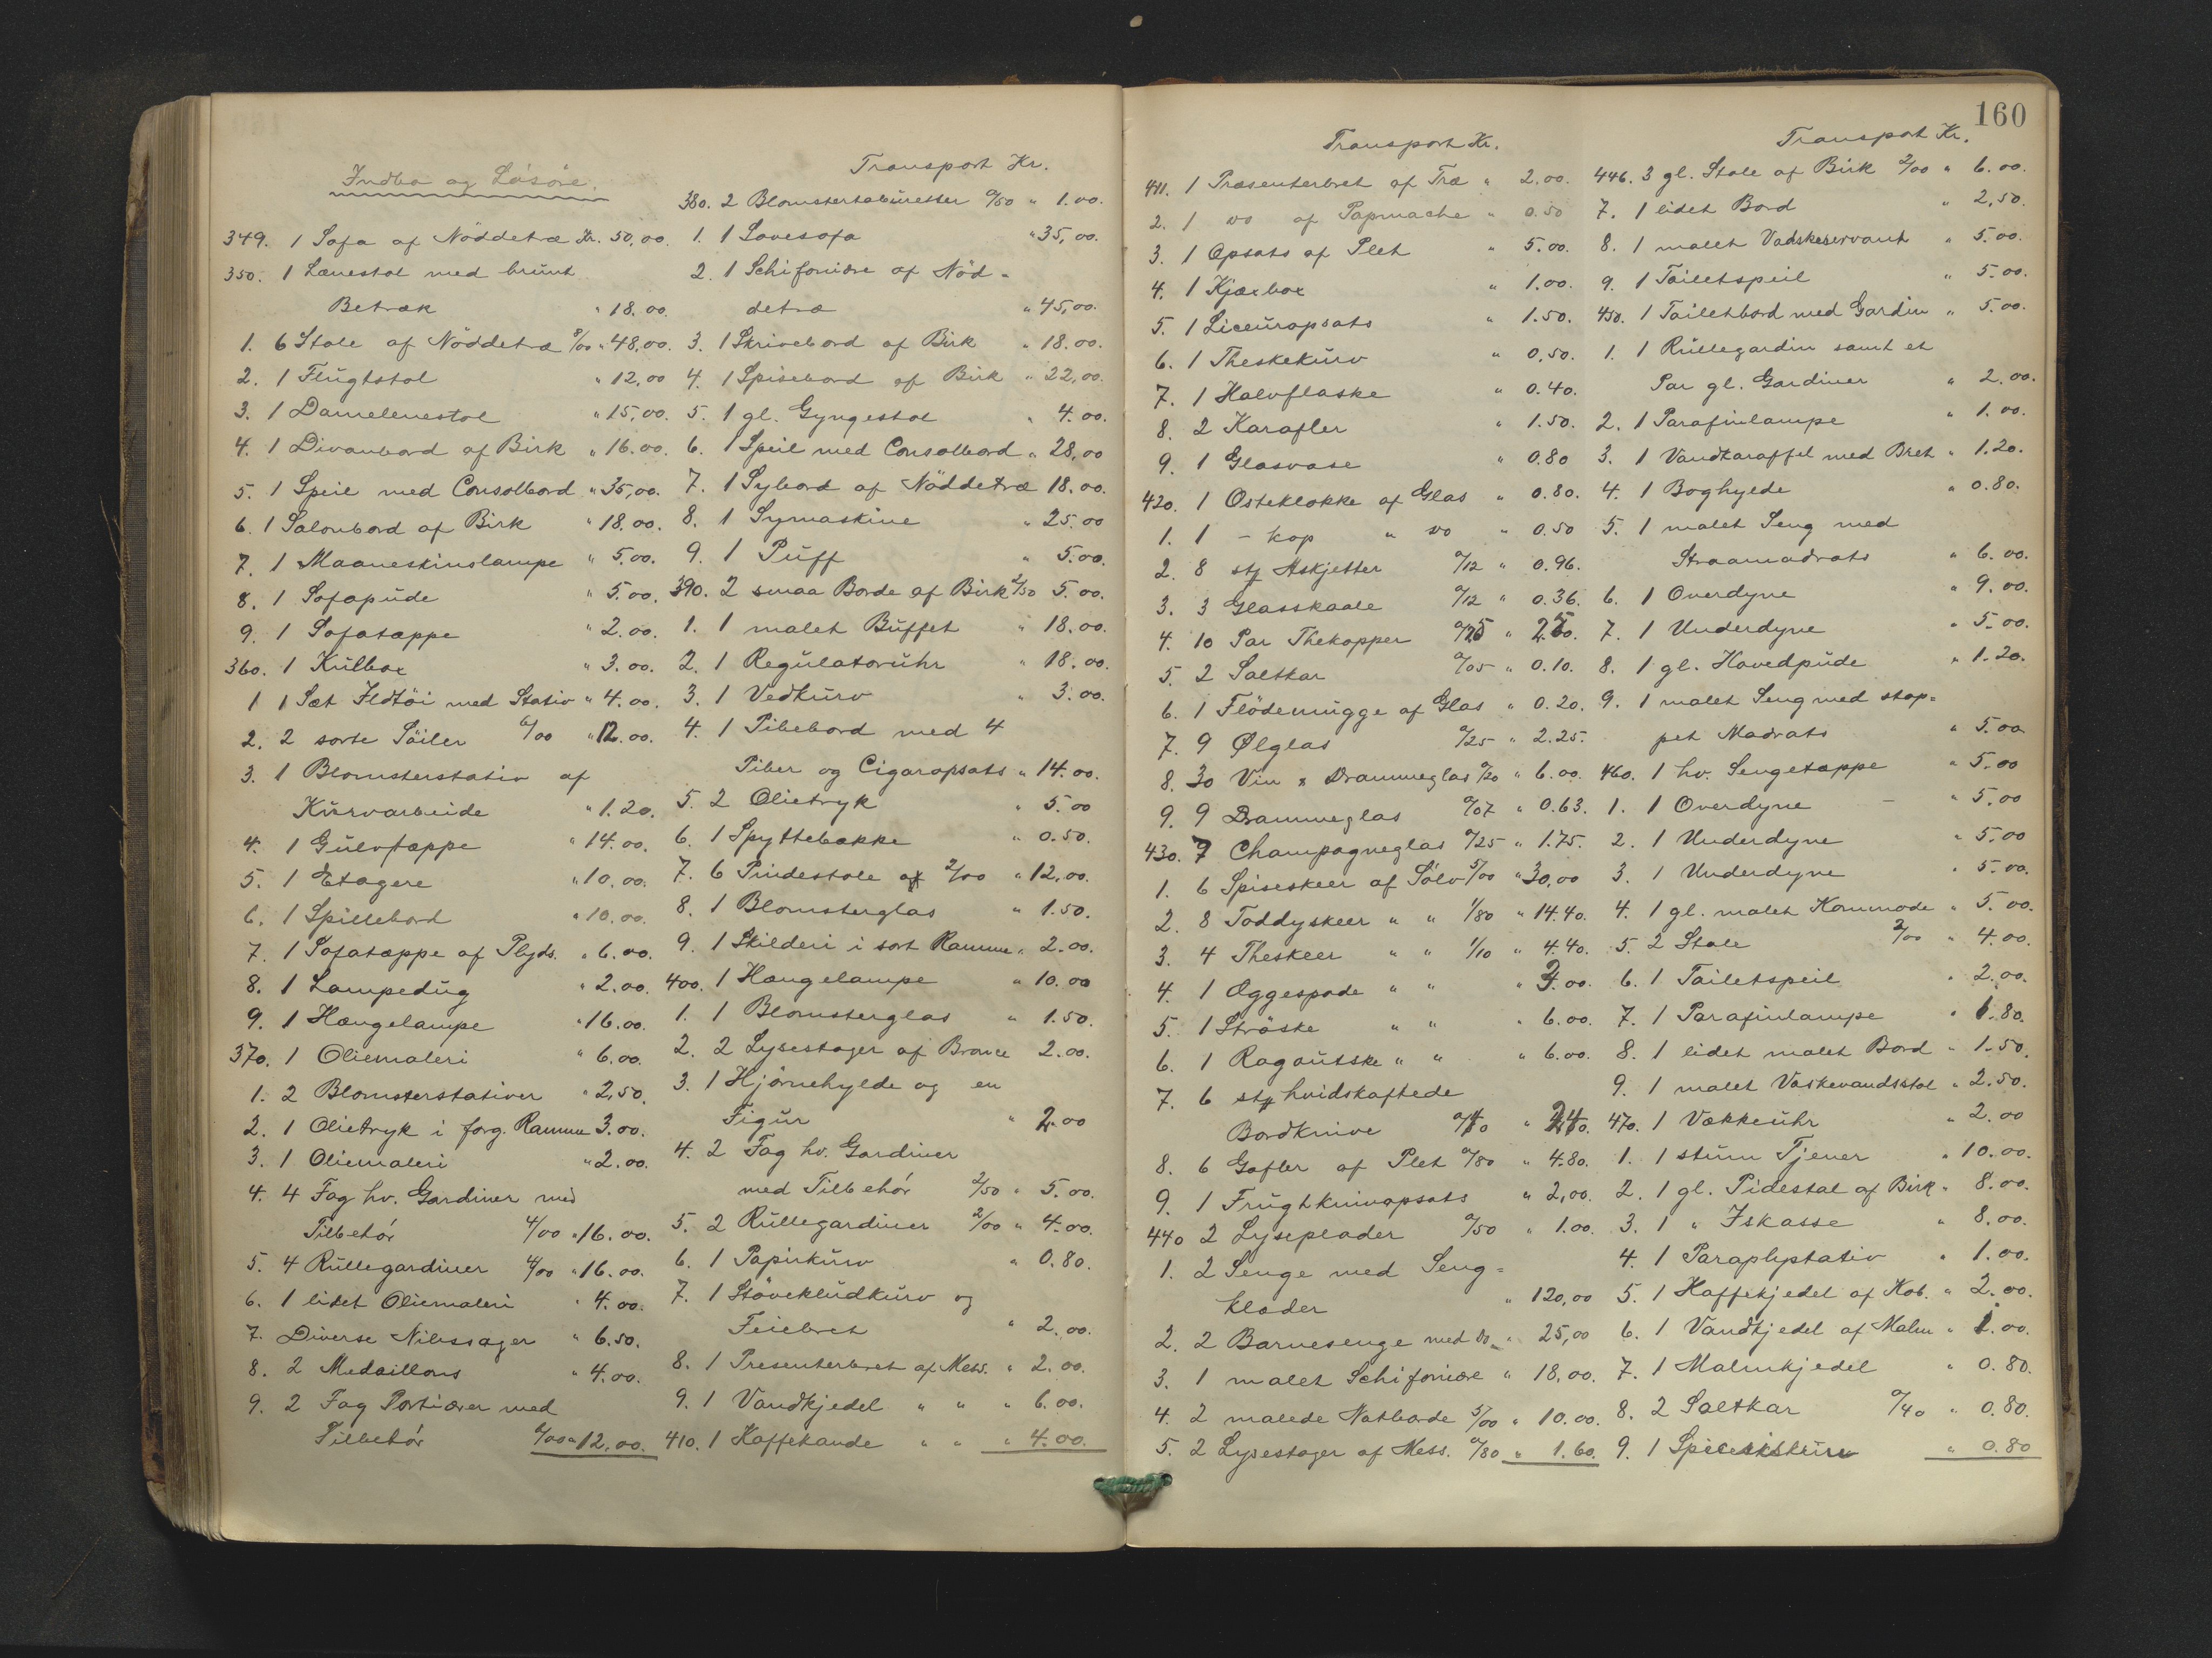 Indbo og Løsøre.
349. 1 Sofa af Nöddetræ Kr. 50,00.
350. 1 Lænestol med brunt
Betræk " 18.00.
1. 6 Stole af Nöddetræ 8/00 " 48,00.
2. 1 Flugtstol " 12,00
3. 1 Damelenestol " 15,00.
4. 1 Divanbord af Birk " 16.00.
5. 1 Speil med Consolbord " 35,00.
6. 1 Salonbord af Birk " 18.00.
7. 1 Maaneskinslampe " 5.00.
8. 1 Sofapude " 5.00.
9. 1 Sofatæppe " 2.00.
360. 1 Kulbox " 3.00.
1 1 Sæt Ildtöi med Stativ " 4.00.
2. 2 sorte Söiler 6/00 " 12.00.
3. 1 Blomsterstativ af
Kurvarbeide " 1.20.
4. 1 Gulvtæppe " 14.00.
5. 1 Etagere " 10.00.
6. 1 Spillebord " 10.00.
7. 1 Sofatæppe af Plyds. " 6.00.
8. 1 Lampedug " 2.00.
9. 1 Hængelampe " 16.00.
370. 1 Oliemaleri " 6.00.
1. 2 Blomsterstativer " 2,50.
2. 1 Olietryk i forg. Ramme 3.00.
3. 1 Oliemaleri " 2.00.
4. 4 Fag hv. Gardiner med
Tilbehør 4/00 " 16.00.
5. 4 Rullegardiner 4/00 " 16.00.
6. 1 lidet Oliemaleri " 4.00.
7. Diverse Nibssager " 6.50.
8. 2 Medaillons " 4.00.
9. 2 Fag Portiærer med
Tilbehör 6/00 " 12.00.
Transport Kr.
380. 2 Blomstertabüretter 0/50 " 1.00.
1. 1 Sovesofa " 35,00.
2. 1 Schifoniere af Nöd-
detræ " 45,00.
3. 1 Skrivebord af Birk " 18.00.
4. 1 Spisebord af Birk " 22,00.
5. 1 gl. Gyngestol " 4.00.
6. 1 Speil med Consolbord " 28,00
7. 1 Sybord af Nöddetræ 18.00.
8. 1 Symaskine " 25.00
9. 1 Puff " 5.00.
390. 2 smaa Borde af Birk 2/50 5.00.
1. 1 malet Buffet " 18.00.
2. 1 Regulatoruhr " 18.00.
3. 1 Vedkurv " 3.00.
4. 1 Pibebord med 4
Piber og Cigaropsats " 14.00.
5. 2 Olietryk " 5.00
6. 1 Spyttebakke " 0.50.
7. 6 Pindestole af 2/00 " 12,00.
8. 1 Blomsterglas " 1.50.
9. 1 Skilderi i sort Ramme " 2.00.
400. 1 Hængelampe " 10.00
1. 1 Blomsterglas " 1.50.
2. 2 Lysestager af Bronce 2.00.
3. 1 Hjörnehylde og en
Figur " 2.00
4. 2 Fag hv. Gardiner
med Tilbehør 2/50 " 5.00.
5. 2 Rullegardiner 2/00 " 4.00.
6. 1 Papirkurv " 0.80.
7. 1 Stövekludkurv og
Feiebret " 2.00.
8. 1 Presenterbret af Mess. " 2.00.
9. 1 Vandkjedel " " " 6.00.
410. 1 Kaffekande " " " 4.00.
Transport Kr.
411. 1 Præsenterbret af Træ " 2.00.
2. 1 do af Papmache " 0.50
3. 1 Opsats af Plet " 5.00.
4. 1 Kjæxbox " 1.00.
5. 1 Liceuropsats " 1.50.
6. 1 Theskekurv " 0,50.
7. 1 Halvflaske " 0.40.
8. 2 Karafler " 1.50.
9. 1 Glasvase " 0.80
420. 1 Osteklokke af Glas " 0.80.
1. 1 - kop " do " 0.50
2. 8 stk Askjetter 0/12 " 0.96.
3. 3 Glasskaale 0/12 " 0.36.
4. 10 Par Thekopper 0/25 " 2.50.
5. 2 Saltkar 0/05 " 0.10.
6. 1 Flödemugge af Glas " 0.20.
7. 9 Ølglas 0/25 " 2.25.
8. 30 Vin & Drammeglas 0/20 " 6.00.
9. 9 Drammeglas 0/07 " 0.63.
430. 7 Champagneglas 0/25 " 1.75.
1. 6 Spiseskeer af Sölv 5/00 " 30,00
2. 8 Toddyskeer " " 1/80 " 14.40.
3. 4 Theskeer " " 1/10 " 4.40.
4. 1 Æggespade " "
5. 1 Ströske " " " 6.00.
6. 1 Ragoutske " " " 6.00.
7. 6 stk hvidskaftede
Bordknive 0/40 " 2.40.
8. 6 Gafler af Plet 0/80 " 4.80.
9. 1 Frugtknivopsats " 2,00.
440 2 Lyseplader 0/50 " 1.00.
1. 2 Senge med Seng-
klæder " 120,00
2. 2 Barnesenge med do " 25,00
3. 1 malet Schifoniere " 18,00.
4. 2 malede Natborde 5/00 " 10.00.
5. 2 Lysestager af Mess. 0/80 " 1.60.
160
Transport Kr.
446. 3 gl. Stole af Birk 2/00 " 6.00.
7. 1 lidet Bord " 2,50.
8. 1 malet Vadskeservant " 5.00.
9. 1 Toiletspeil " 5.00.
450. 1 Toiletbord med Gardin " 5.00.
1. 1 Rullegardin samt et
Par gl. Gardiner " 2.00.
2. 1 Parafinlampe " 1.00.
3. 1 Vandkaraffel med Bret " 1.20.
4. 1 Boghylde " 0.80.
5. 1 malet Seng med
Straamadrats " 6.00.
6. 1 Overdyne " 9.00.
7. 1 Underdyne " 5.00.
8. 1 gl. Hovedpude " 1.20.
9. 1 malet Seng med stop-
pet Madrats " 5.00
460. 1 hv. Sengetæppe " 5.00
1. 1 Overdyne - " 5.00
2. 1 Underdyne " 5.00
3. 1 Underdyne " 5.00.
4. 1 gl. malet Kommode " 5.00.
5. 2 Stole 2/00 " 4.00.
6. 1 Toiletspeil " 2.00.
7. 1 Parafinlampe " 1.80.
8. 1 lidet malet Bord " 1.50.
9. 1 malet Vaskevandsstol " 2.50.
470. 1 Vækkeuhr " 2.00
1. 1 stum Tjener " 10.00.
2. 1 gl. Pidestal af Birk " 8.00.
3. 1 " Iskasse " 8.00.
4. 1 Paraplystativ " 1.00.
5. 1 Kaffekjedel af Kob. " 2.00.
6. 1 Vandkjedel af Malm " 1.00.
7. 1 Malmkjedel " 0.80.
8. 2 Saltkar 0/40 " 0.80.
9. 1 " 0.80